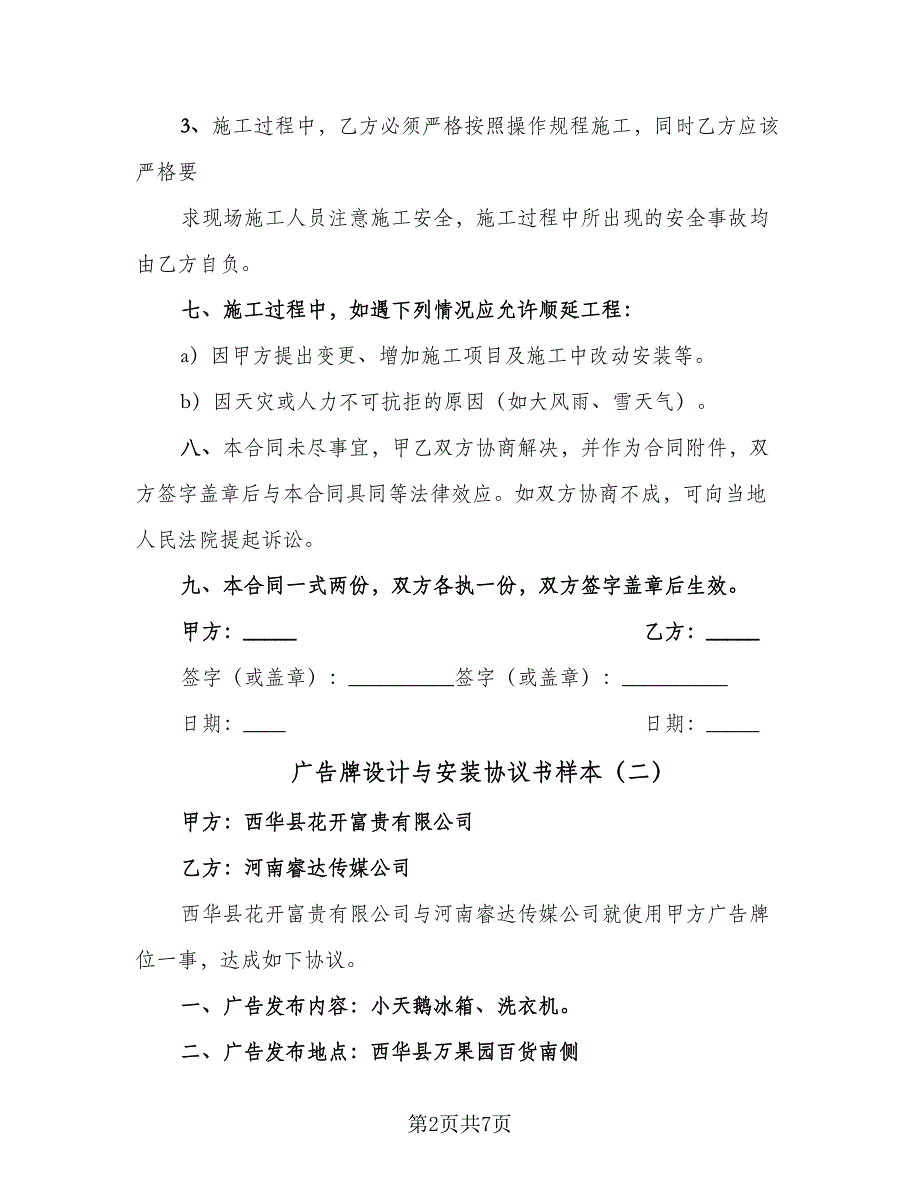 3、施工过程中，乙方必须严格按照操作规程施工，同时乙方应该
严格要
求现场施工人员注意施工安全，施工过程中所出现的安全事故均
由乙方自负。
七、施工过程中，如遇下列情况应允许顺延工程：
a）因甲方提出变更、增加施工项目及施工中改动安装等。
b）因天灾或人力不可抗拒的原因（如大风雨、雪天气）。
八、本合同未尽事宜，甲乙双方协商解决，并作为合同附件，双
方签字盖章后与本合同具同等法律效应。如双方协商不成，可向当地
人民法院提起诉讼。
九、本合同一式两份，双方各执一份，双方签字盖章后生效。
甲方：_____ 乙方：_____
签字（或盖章）：__________签字（或盖章）：__________
日期：____ 日期：_____
广告牌设计与安装协议书样本（二）
甲方：西华县花开富贵有限公司
乙方：河南睿达传媒公司
西华县花开富贵有限公司与河南睿达传媒公司就使用甲方广告牌
位一事，达成如下协议。
一、广告发布内容：小天鹅冰箱、洗衣机。
二、广告发布地点：西华县万果园百货南侧
第2页共7页